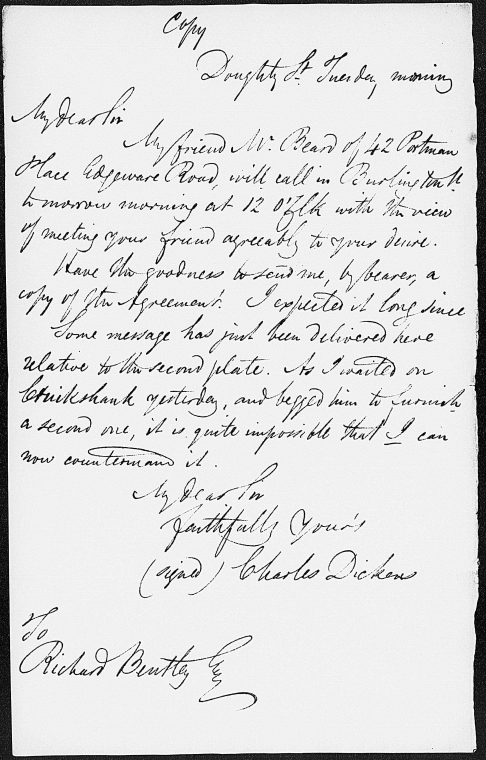 Copy
Doughty St. Tuesday morning
My dear Sir
My friend Mr. Beard of 42 Portman
Place Edgeware Road, will call in Burlington St.
tomorrow morning at 12 O'Clk with the view
of meeting your friend agreeably to your desire.
Have the goodness to send me, by bearer, a
copy of the Agreement. I expected it long since
Some message has just been delivered here
relative to the second plate. As I waited on
Cruikshank yesterday, and begged him to furnish
a second one, it is quite impossible that I can
now countermand it.
My dear Sir
faithfully Yours
(signed) Charles Dickens
To
Richard Bentley Esq